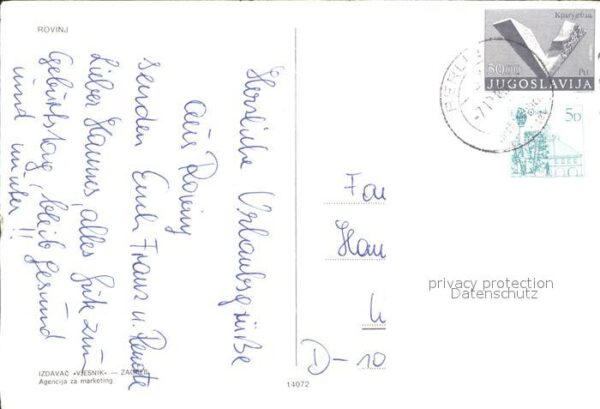 ROVINJ
Herzliche Urlaubsgrüße
aus Rovinj
senden Euch Franz u. Renate
Lieber Hannes, alles Gute zum
Geburtstag, bleib gesund
und munter!!
IZDAVAČ »VJESNIK« — ZAGREB
Agencija za marketing
14072
Крагујевац
30.00
Ptt
JUGOSLAVIJA
5D
Fa
Han
D-10
privacy protection
Datenschutz